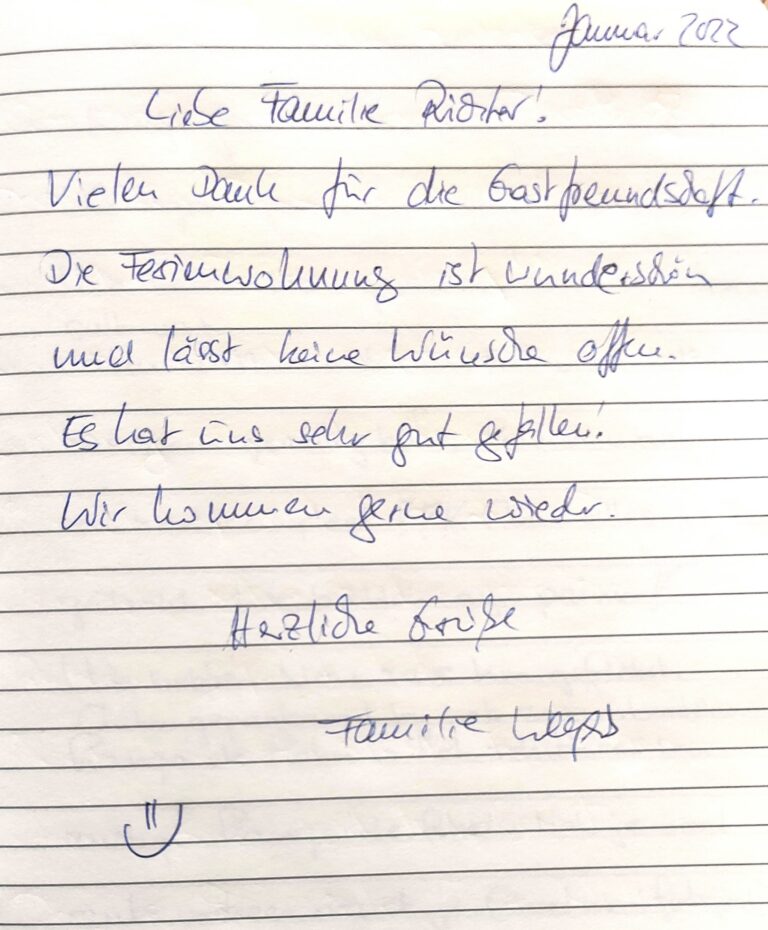 Januar 2022
Liebe Familie Richter!
Vielen Dank für die Gastfreundschaft.
Die Ferienwohnung ist wunderschön
und lässt keine Wünsche offen.
Es hat uns sehr gut gefallen!
Wir kommen gerne wieder.
Herzliche Grüße
Familie